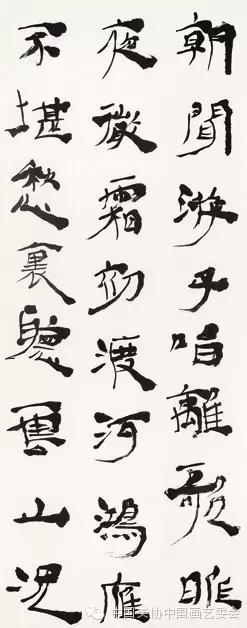 朝聞游子唱離歌昨
夜微霜初渡河鴻雁
不堪愁裏聽雲山況
中国美协中国画艺委会